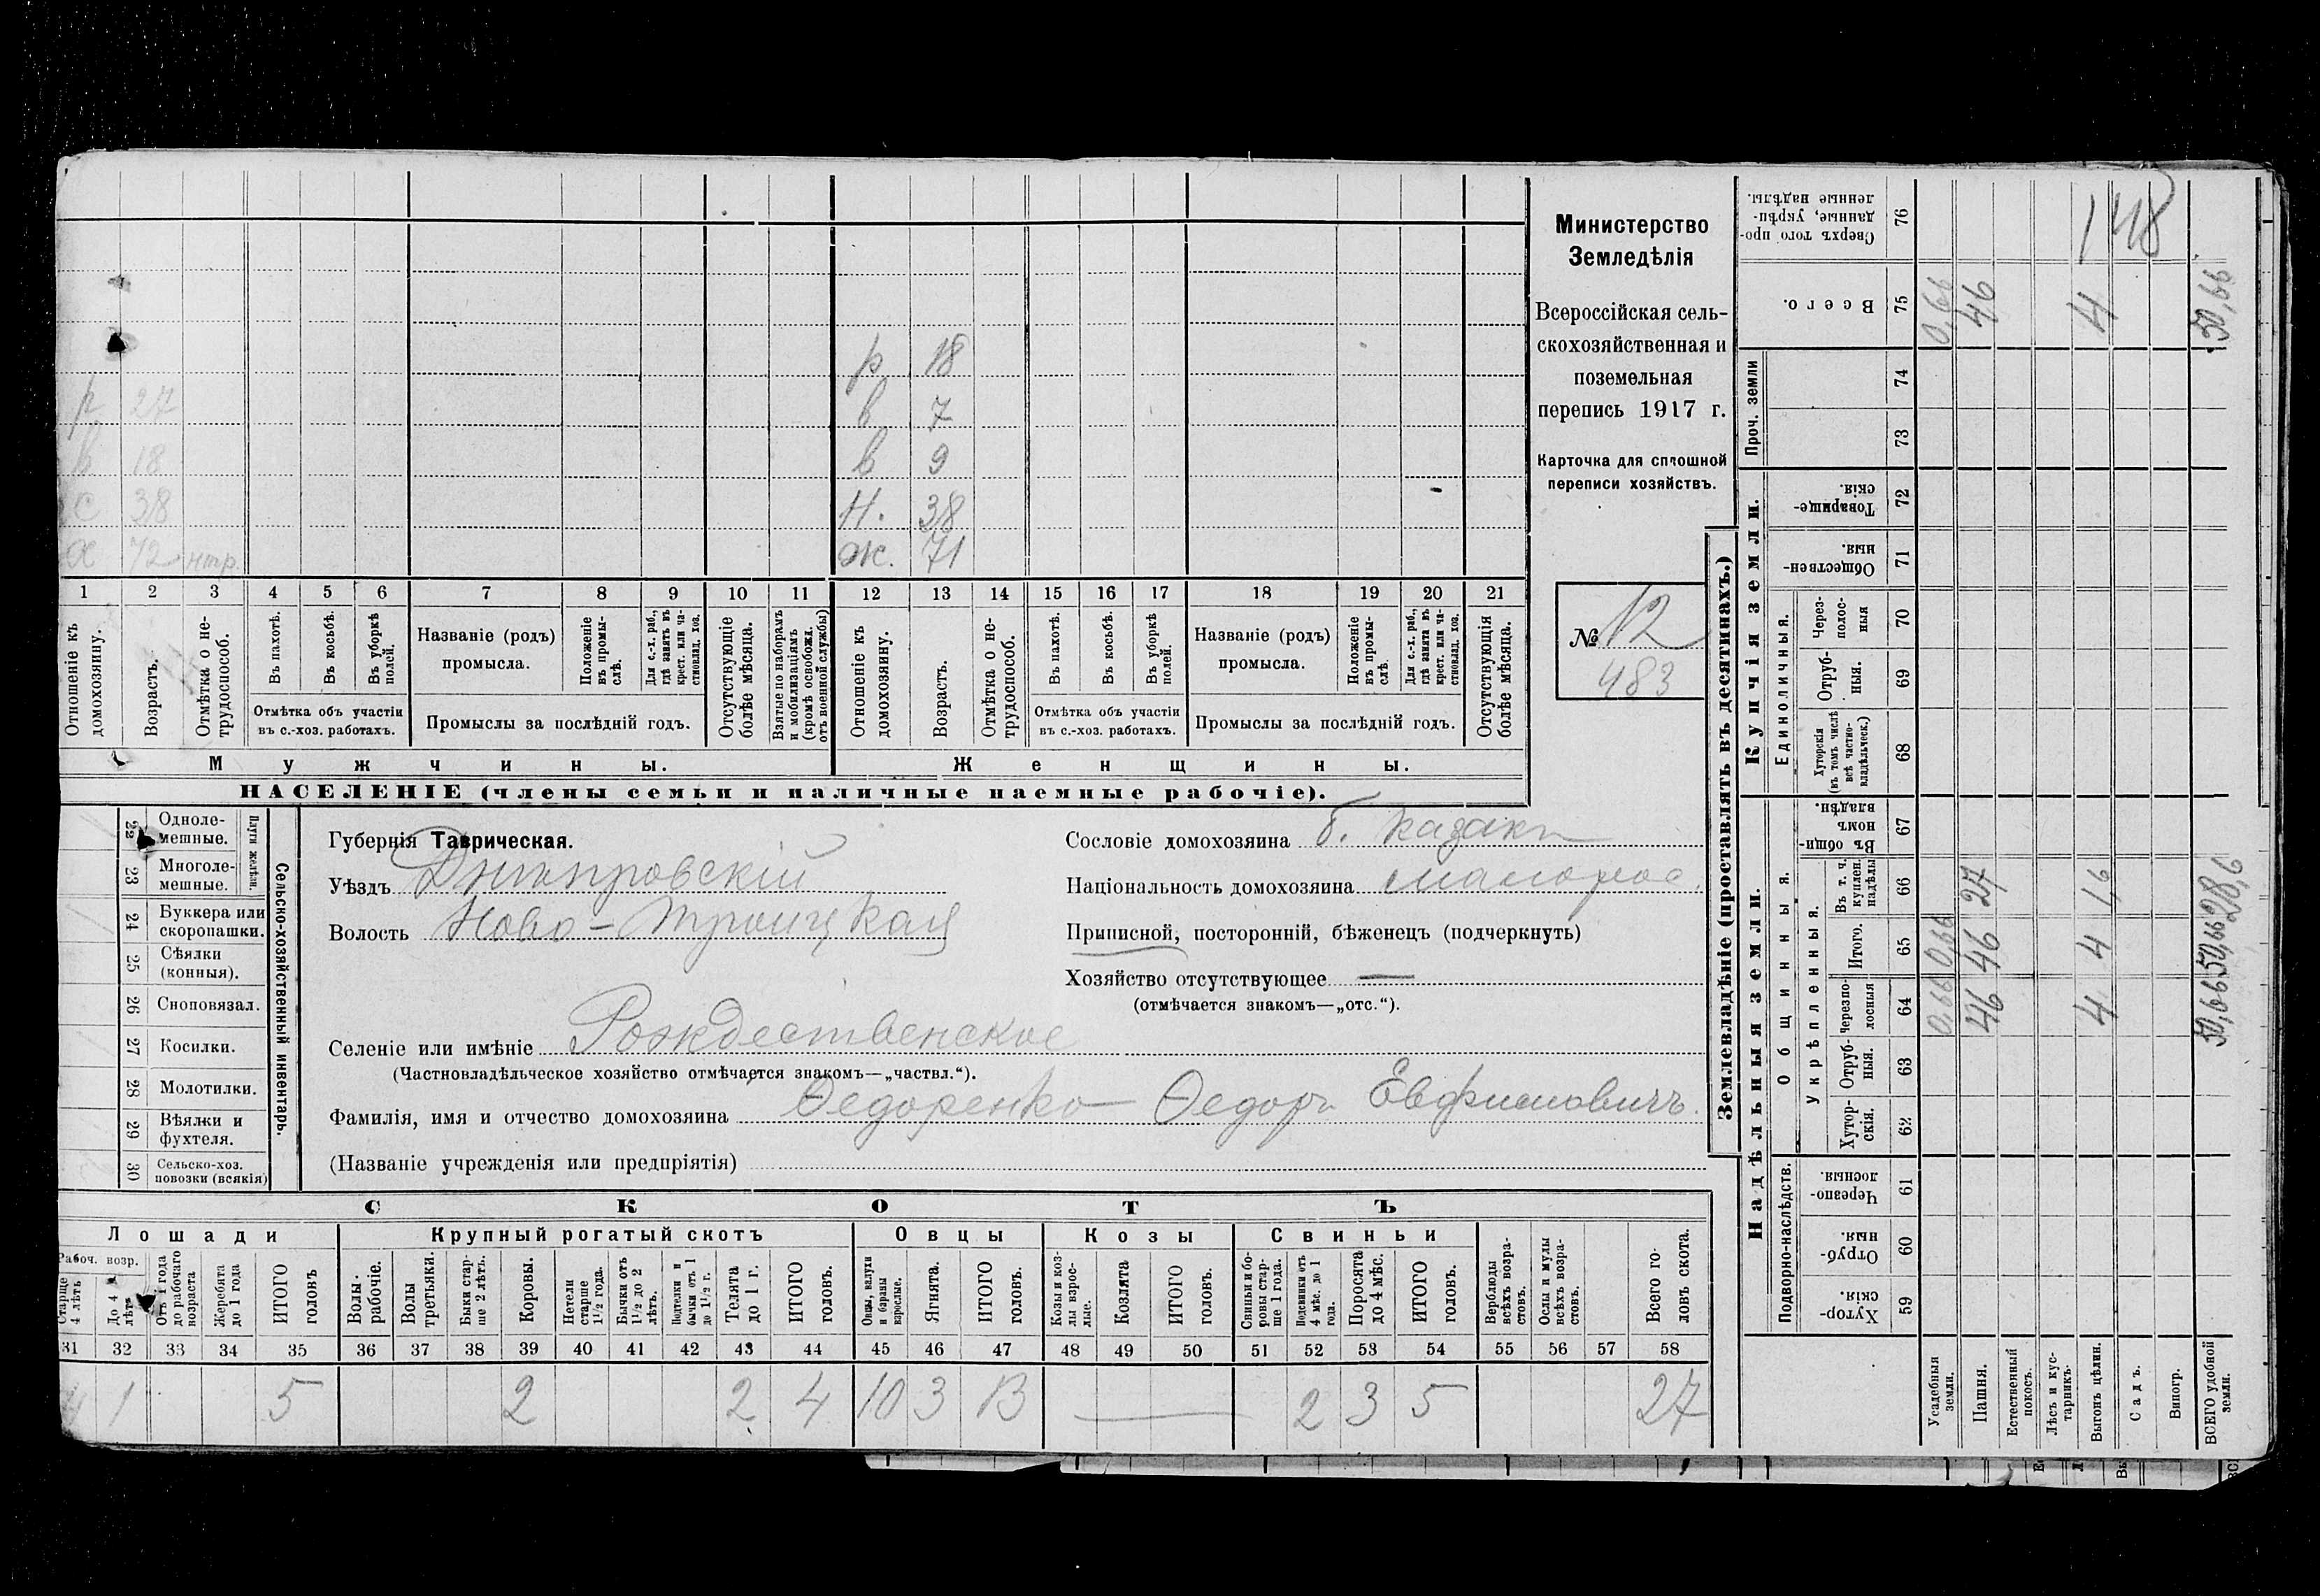 р 18
р 27 в 7
в 18 в 9
с 38 н. 38
х 72 нтр. ж. 71
1 2 3 4 5 6 7 8 9 10 11 12 13 14 15 16 17 18 19 20 21
Отношеніе къ домохозяину.
Возрастъ.
Отмѣтка о не-
трудоспособ.
Въ пахотѣ.
Въ косьбѣ.
Въ уборкѣ
полей.
Отмѣтка объ участіи
въ с.-хоз. работахъ.
Названіе (родъ)
промысла.
Положеніе
въ промы-
слѣ.
Для с.-х. раб.,
гдѣ занятъ въ
крест. или ча-
стновлад. хоз.
Промыслы за послѣдній годъ.
Отсутствующіе
болѣе мѣсяца.
Взятые по наборамъ
и мобилизаціямъ
(кромѣ освобожд.
отъ военной службы)
Отношеніе къ
домохозяину.
Возрастъ.
Отмѣтка о не-
трудоспособ.
Въ пахотѣ.
Въ косьбѣ.
Въ уборкѣ
полей.
Отмѣтка объ участіи
въ с.-хоз. работахъ.
Названіе (родъ)
промысла.
Положеніе
въ промы-
слѣ.
Для с.-х. раб.,
гдѣ занятъ въ
крест. или ча-
стновлад. хоз.
Промыслы за послѣдній годъ.
Отсутствующія
болѣе мѣсяца.
Мужчины. Женщины.
НАСЕЛЕНІЕ (члены семьи и наличные наемные рабочіе).
Министерство
Земледѣлія
Всероссійская сель-
скохозяйственная и
поземельная
перепись 1917 г.
Карточка для сплошной
переписи хозяйствъ.
№ 12
483
22 Одноле-
мешные.
23 Многоле-
мешные.
Плуги желѣзн.
24 Буккера или
скоропашки.
25 Сѣялки
(конныя).
26 Сноповязал.
27 Косилки.
28 Молотилки.
29 Вѣялки и
фухтеля.
30 Сельско-хоз.
повозки (всякія)
Сельско-хозяйственный инвентарь.
Губернія Таврическая.
Уѣздъ Днѣпровскій
Волость Ново-Троицкая
Сословіе домохозяина б. казакъ
Національность домохозяина малорос.
Приписной, посторонній, бѣженецъ (подчеркнуть)
Хозяйство отсутствующее —
(отмѣчается знакомъ—„отс.“).
Селеніе или имѣніе Рождественское
(Частновладѣльческое хозяйство отмѣчается знакомъ—„частвл.“).
Фамилія, имя и отчество домохозяина Ѳедоренко Ѳедоръ Евфимовичъ.
(Названіе учрежденія или предпріятія)
СКОТЪ
Лошади Крупный рогатый скотъ Овцы Козы Свиньи
Рабоч. возр.
Старше
4 лѣтъ
До 4
лѣтъ
Отъ 1 года
до рабочаго
возраста
Жеребята
до 1 года
ИТОГО
головъ
Волы
рабочіе.
Волы
третьяки.
Быки стар-
ше 2 лѣтъ.
Коровы.
Нетели
старше
1½ года.
Бычки отъ
1½ до 2
лѣтъ.
Подтелки и
бычки отъ 1
до 1½ г.
Телята
до 1 г.
ИТОГО
головъ.
Овцы, валухи
и бараны
взрослые.
Ягнята.
ИТОГО
головъ.
Козы и коз-
лы взрос-
лые.
Козлята
ИТОГО
головъ.
Свиньи и бо-
ровы стар-
ше 1 года.
Подсвинки отъ
4 мѣс. до 1
года.
Поросята
до 4 мѣс.
ИТОГО
головъ.
Верблюды
всѣхъ возра-
стовъ.
Ослы и мулы
всѣхъ возра-
стовъ.
Всего го-
ловъ скота.
31 32 33 34 35 36 37 38 39 40 41 42 43 44 45 46 47 48 49 50 51 52 53 54 55 56 57 58
4 1 5 2 2 4 10 3 13 — 2 3 5 27
Землевладѣніе (проставлять въ десятинахъ.)
Купчія земли.
Надѣльныя земли.
Сверхъ того про-
данные, укрѣп-
ленные надѣлы.
76
148
Всего.
75
0,66 46 4 50,66
Проч. земли
74
73
Товарище-
скія.
72
Обществен-
ныя.
71
Единоличныя.
Через-
полос-
ныя
70
Отруб-
ныя.
69
Хуторскія
(въ томъ числѣ
всѣ частно-
владѣльческ.)
68
Общинныя.
Въ общин-
номъ
владѣн.
67
Укрѣпленныя.
Въ т. ч.
куплен.
надѣлы
66
27 1,6 28,6
Итого.
65
0,66 46 4 50,66
Черезпо-
лосныя
64
0,66 46 4 50,66
Отруб-
ныя.
63
Хутор-
скія.
62
Подворно-наслѣдств.
Черезпо-
лосныя
61
Отруб-
ныя.
60
Хутор-
скія.
59
Усадебныя
земли.
Пашня.
Естественный
покосъ.
Лѣсъ и кус-
тарникъ.
Выгонъ цѣлин.
Садъ.
Виногр.
ВСЕГО удобной
земли.